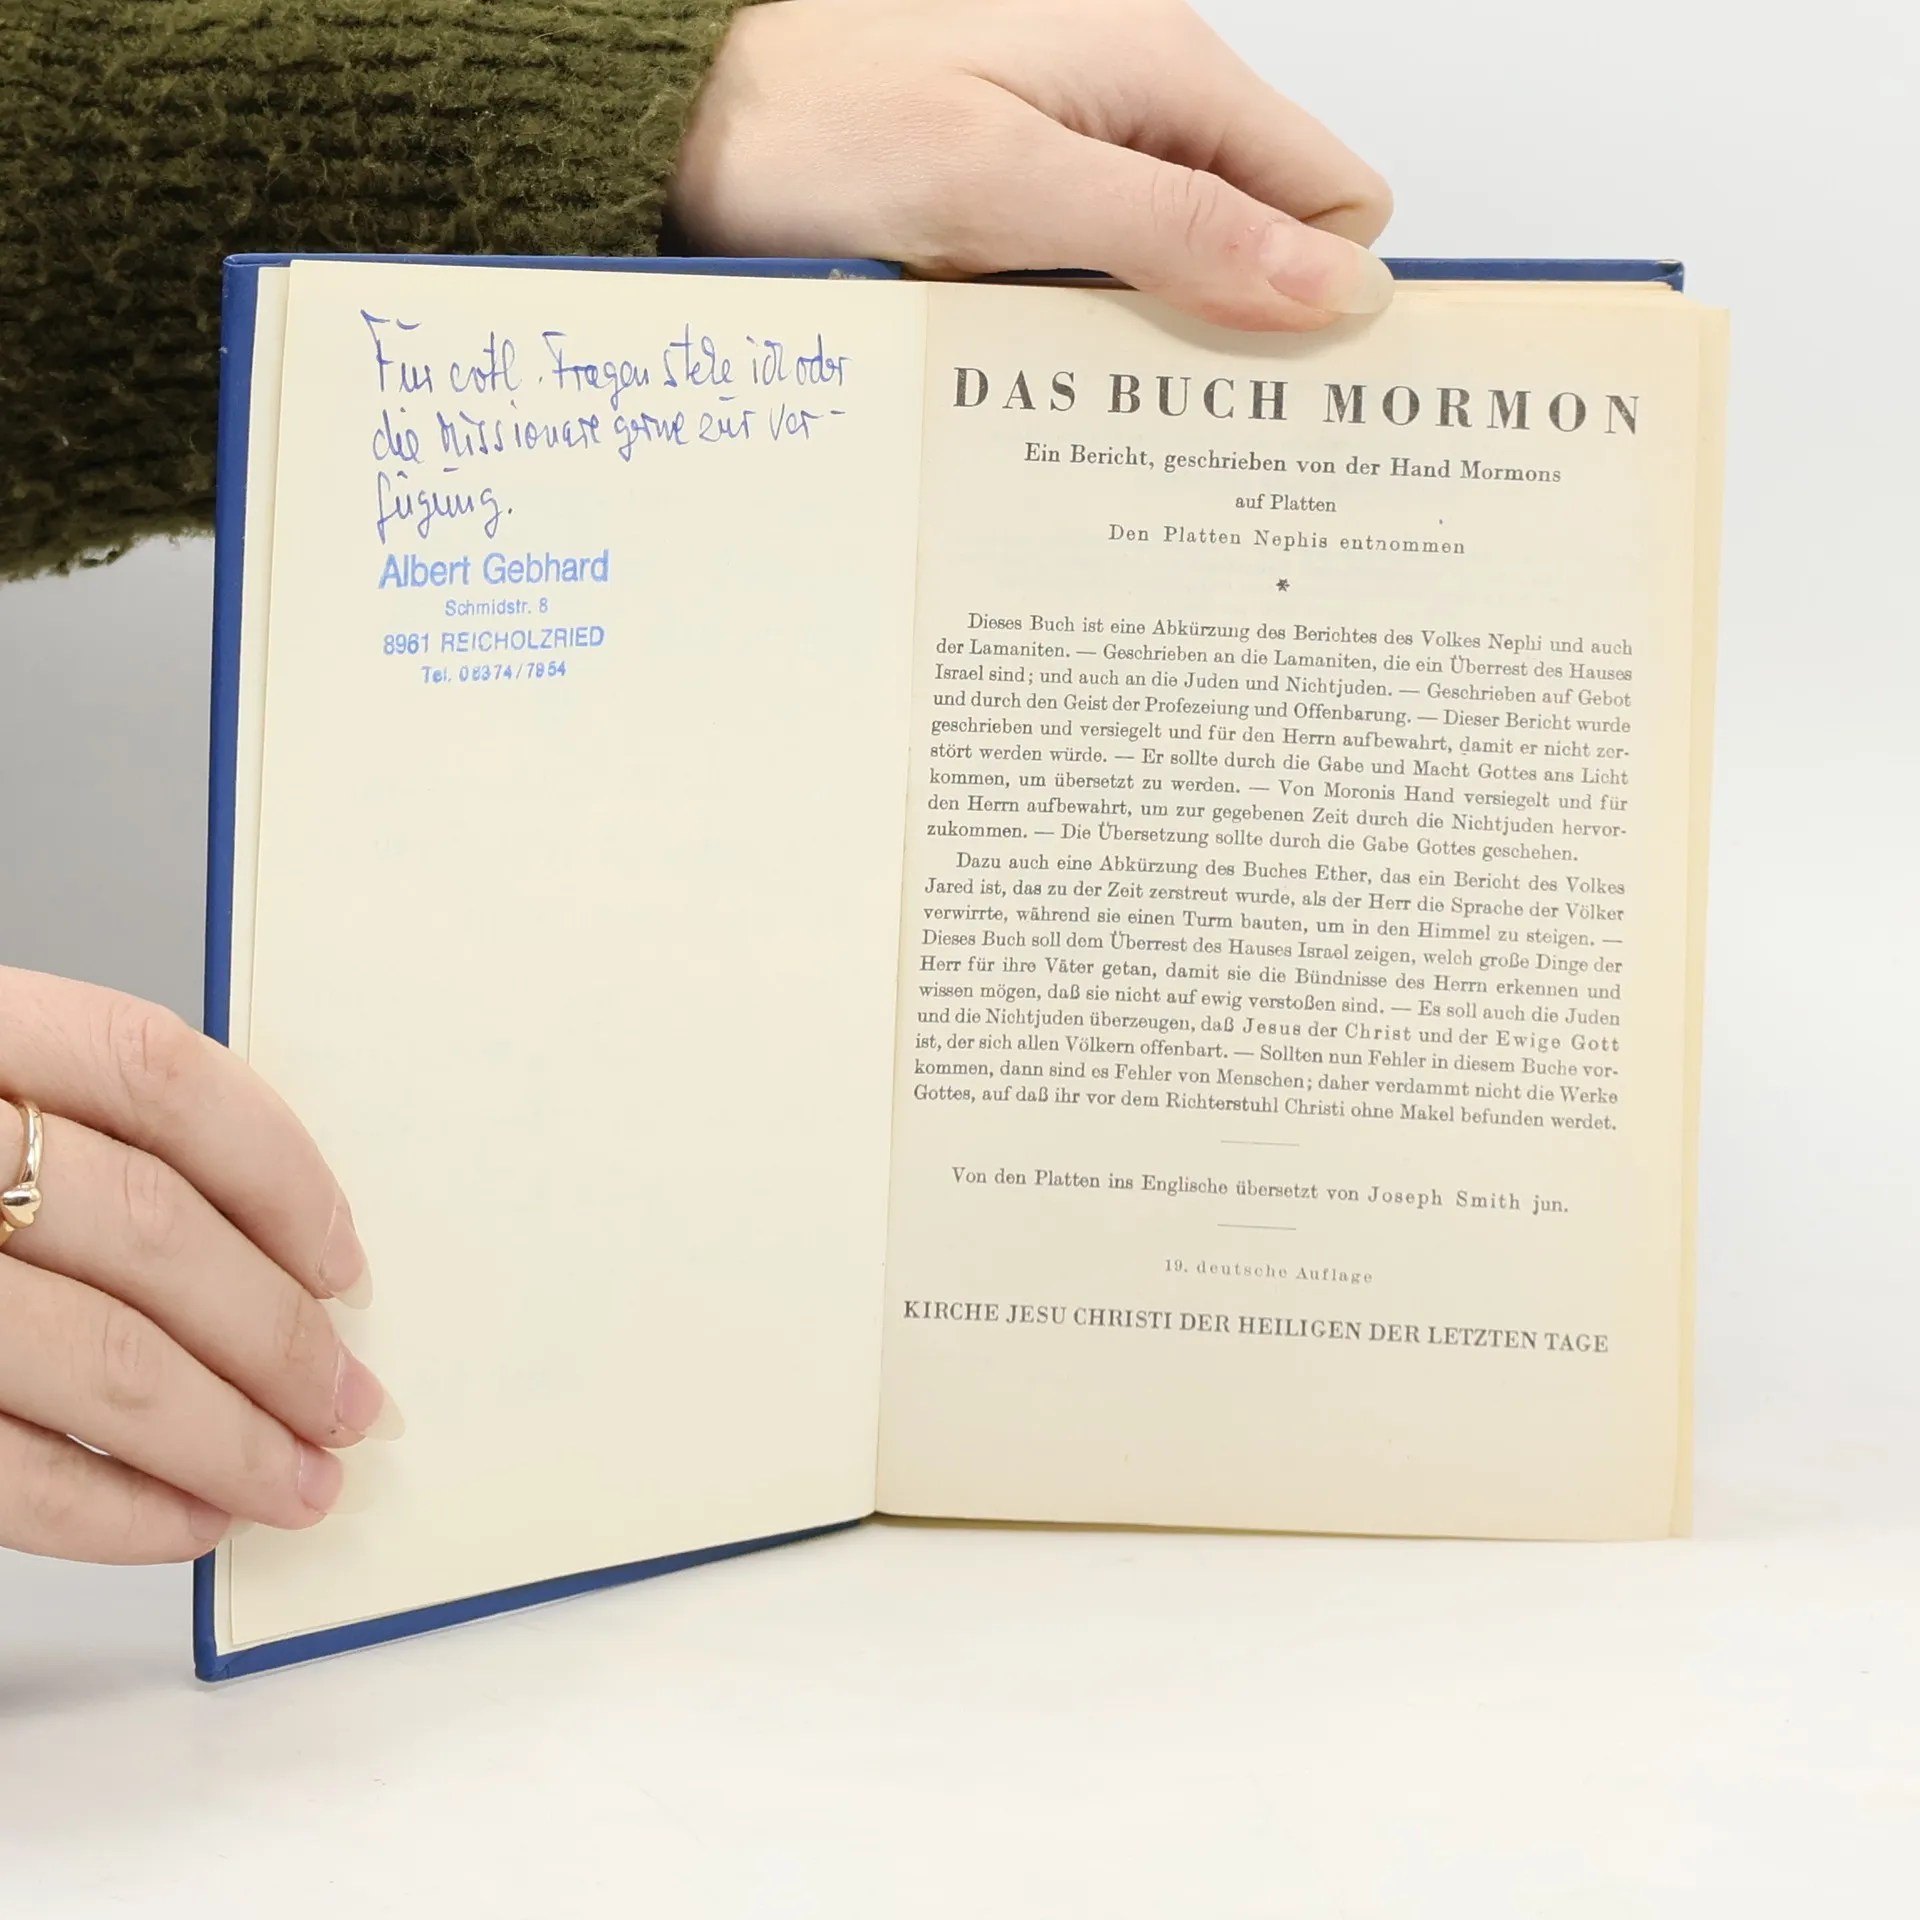 Für evtl. Fragen stehe ich oder
die Missionare gerne zur Ver-
fügung.
Albert Gebhard
Schmidstr. 8
8961 REICHOLZRIED
Tel. 08374/7954
DAS BUCH MORMON
Ein Bericht, geschrieben von der Hand Mormons
auf Platten
Den Platten Nephis entnommen
*
Dieses Buch ist eine Abkürzung des Berichtes des Volkes Nephi und auch
der Lamaniten. — Geschrieben an die Lamaniten, die ein Überrest des Hauses
Israel sind; und auch an die Juden und Nichtjuden. — Geschrieben auf Gebot
und durch den Geist der Profezeiung und Offenbarung. — Dieser Bericht wurde
geschrieben und versiegelt und für den Herrn aufbewahrt, damit er nicht zer-
stört werden würde. — Er sollte durch die Gabe und Macht Gottes ans Licht
kommen, um übersetzt zu werden. — Von Moronis Hand versiegelt und für
den Herrn aufbewahrt, um zur gegebenen Zeit durch die Nichtjuden hervor-
zukommen. — Die Übersetzung sollte durch die Gabe Gottes geschehen.
Dazu auch eine Abkürzung des Buches Ether, das ein Bericht des Volkes
Jared ist, das zu der Zeit zerstreut wurde, als der Herr die Sprache der Völker
verwirrte, während sie einen Turm bauten, um in den Himmel zu steigen. —
Dieses Buch soll dem Überrest des Hauses Israel zeigen, welch große Dinge der
Herr für ihre Väter getan, damit sie die Bündnisse des Herrn erkennen und
wissen mögen, daß sie nicht auf ewig verstoßen sind. — Es soll auch die Juden
und die Nichtjuden überzeugen, daß Jesus der Christ und der Ewige Gott
ist, der sich allen Völkern offenbart. — Sollten nun Fehler in diesem Buche vor-
kommen, dann sind es Fehler von Menschen; daher verdammt nicht die Werke
Gottes, auf daß ihr vor dem Richterstuhl Christi ohne Makel befunden werdet.
Von den Platten ins Englische übersetzt von Joseph Smith jun.
19. deutsche Auflage
KIRCHE JESU CHRISTI DER HEILIGEN DER LETZTEN TAGE